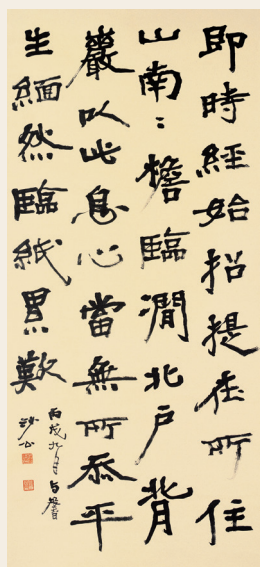 即時經始招提在所住
山南〻檐臨澗北戶背
巖以此息心當無所忝平
生緬然臨紙累歎
丙戌九月
沙公